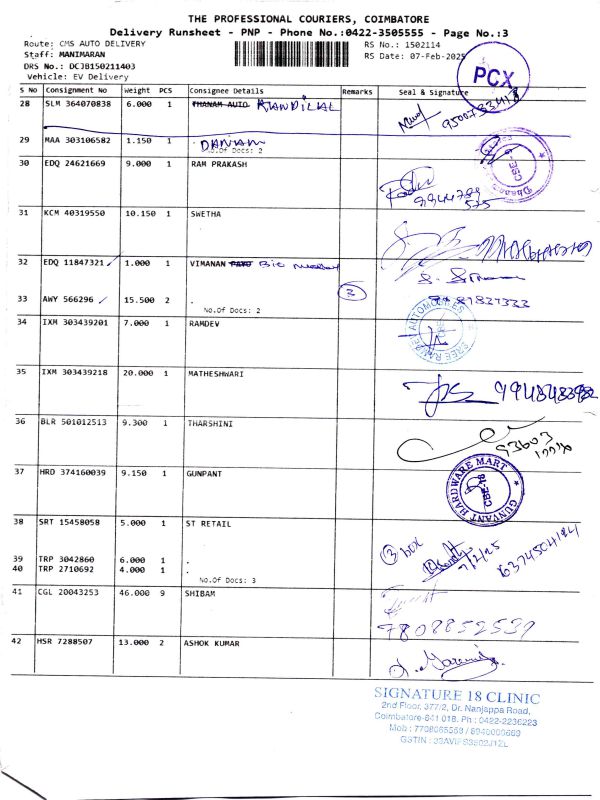 THE PROFESSIONAL COURIERS, COIMBATORE
Delivery Runsheet - PNP - Phone No.:0422-3505555 - Page No.:3
Route: CMS AUTO DELIVERY RS No.: 1502114
Staff: MANIMARAN RS Date: 07-Feb-2025
DRS No.: DCJB150211403
Vehicle: EV Delivery
PCX
S No Consignment No Weight PCS Consignee Details Remarks Seal & Signature
28 SLM 364070838 6.000 1 THANAM AUTO
29 MAA 303106582 1.150 1 .
No.Of Docs: 2
30 EDQ 24621669 9.000 1 RAM PRAKASH
31 KCM 40319550 10.150 1 SWETHA
32 EDQ 11847321 1.000 1 VIMANAN
33 AWY 566296 15.500 2 .
No.Of Docs: 2
34 IXM 303439201 7.000 1 RAMDEV
35 IXM 303439218 20.000 1 MATHESHWARI
36 BLR 501012513 9.300 1 THARSHINI
37 HRD 374160039 9.150 1 GUNPANT
GUNVANT HARDWARE MART
CBE-18
38 SRT 15458058 5.000 1 ST RETAIL
3 box
7/2/25
39 TRP 3042860 6.000 1 .
40 TRP 2710692 4.000 1 .
No.Of Docs: 3
41 CGL 20043253 46.000 9 SHIBAM
7808852539
42 HSR 7288507 13.000 2 ASHOK KUMAR
SIGNATURE 18 CLINIC
2nd Floor, 377/2, Dr. Nanjappa Road,
Coimbatore-641 018. Ph : 0422-2236223